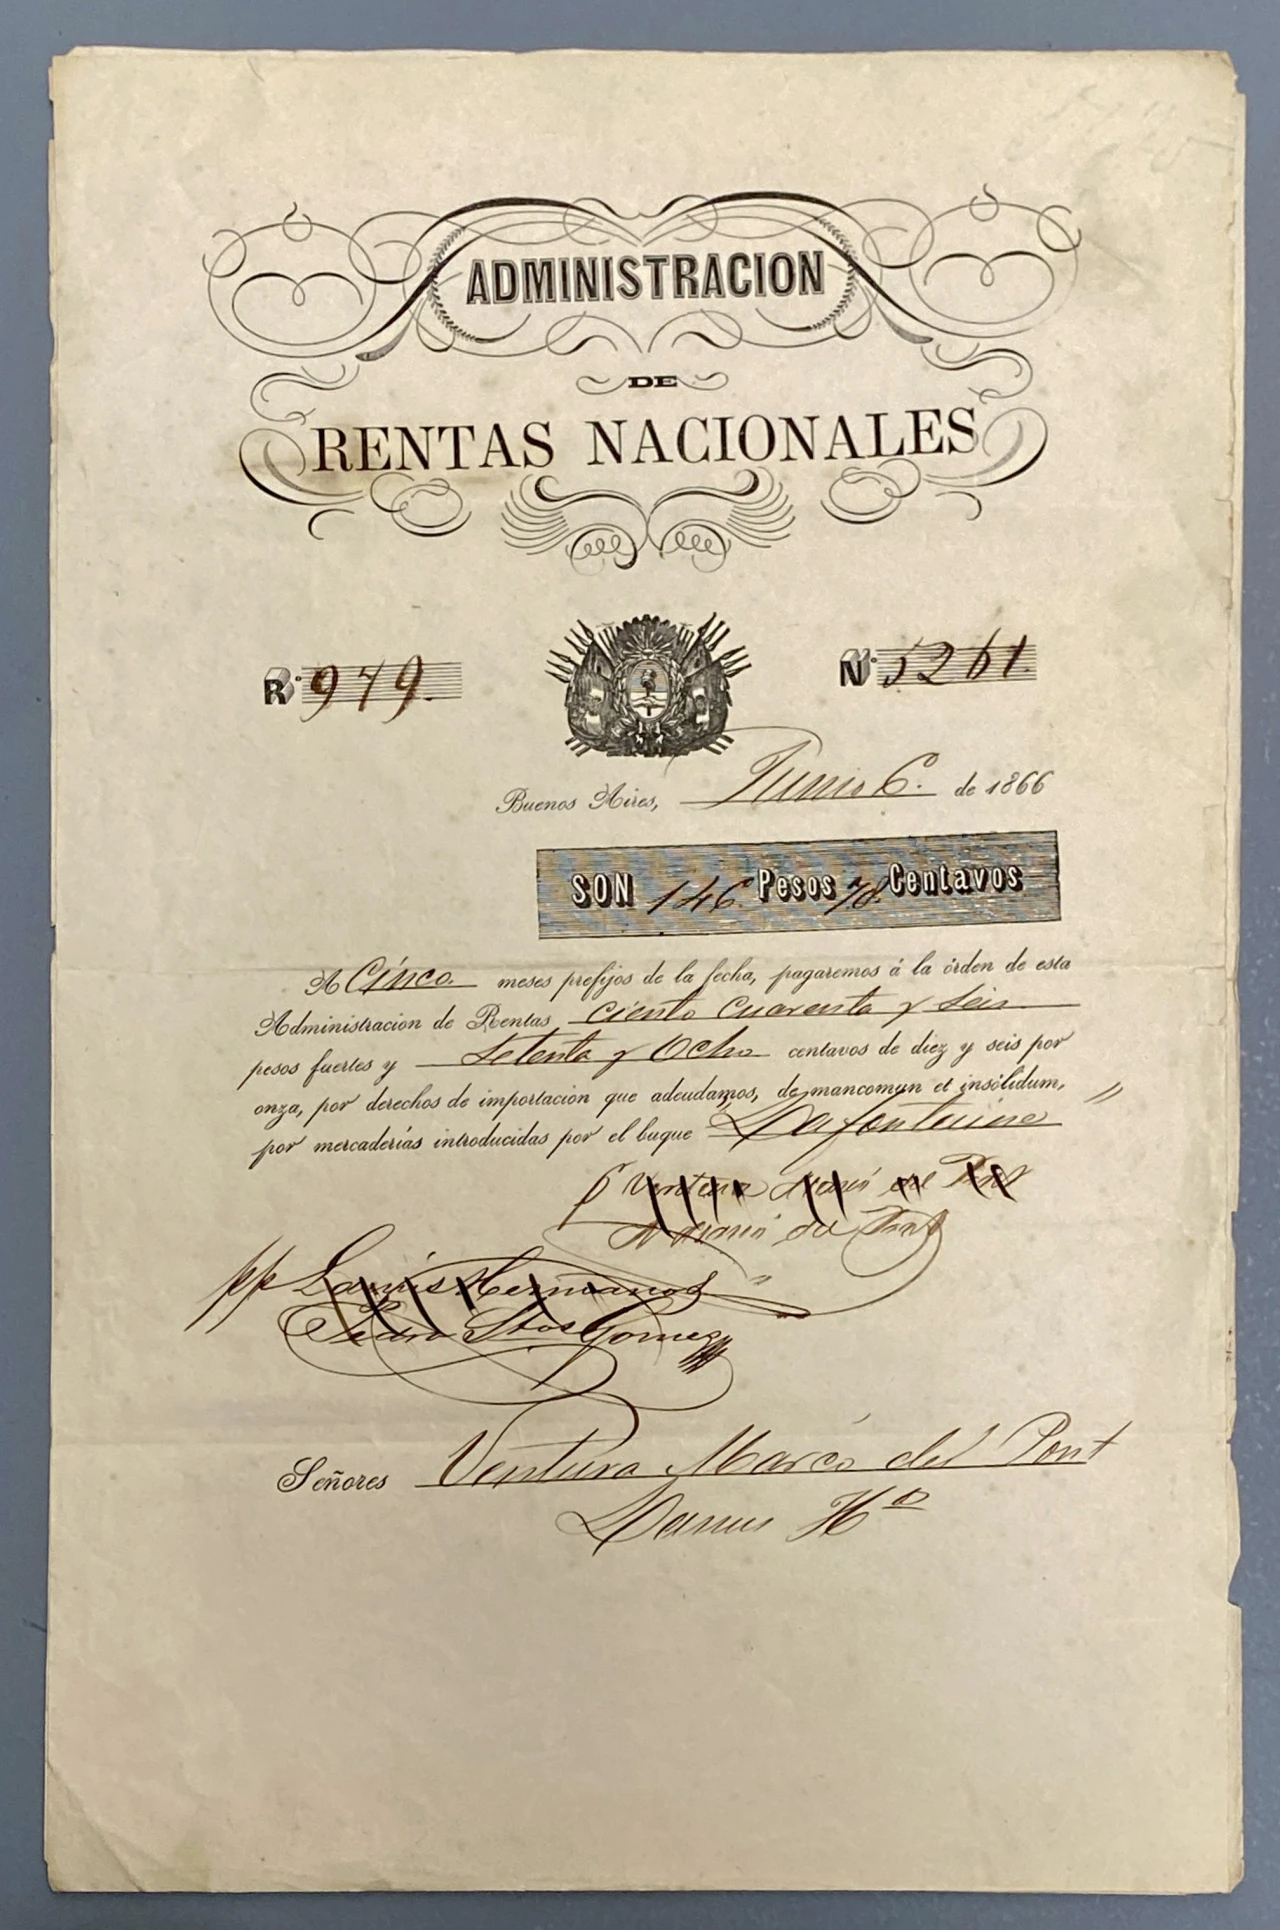 ADMINISTRACION
DE
RENTAS NACIONALES
R.º 979. N.º 5261.
Buenos Aires, Junio 6. de 1866
SON 146. Pesos 78. Centavos
A Cinco. meses prefijos de la fecha, pagaremos á la órden de esta
Administracion de Rentas Ciento Cuarenta y Seis
pesos fuertes y Setenta y Ocho centavos de diez y seis por
onza, por derechos de importacion que adeudamos, de mancomun et insólidum,
por mercaderías introducidas por el buque "Lafontaine"
Ventura Marcó del Pont
Marcó del Pont
pp Lanus Hermanos
Pedro Stos Gomez
Señores Ventura Marcó del Pont
Lanus Hos